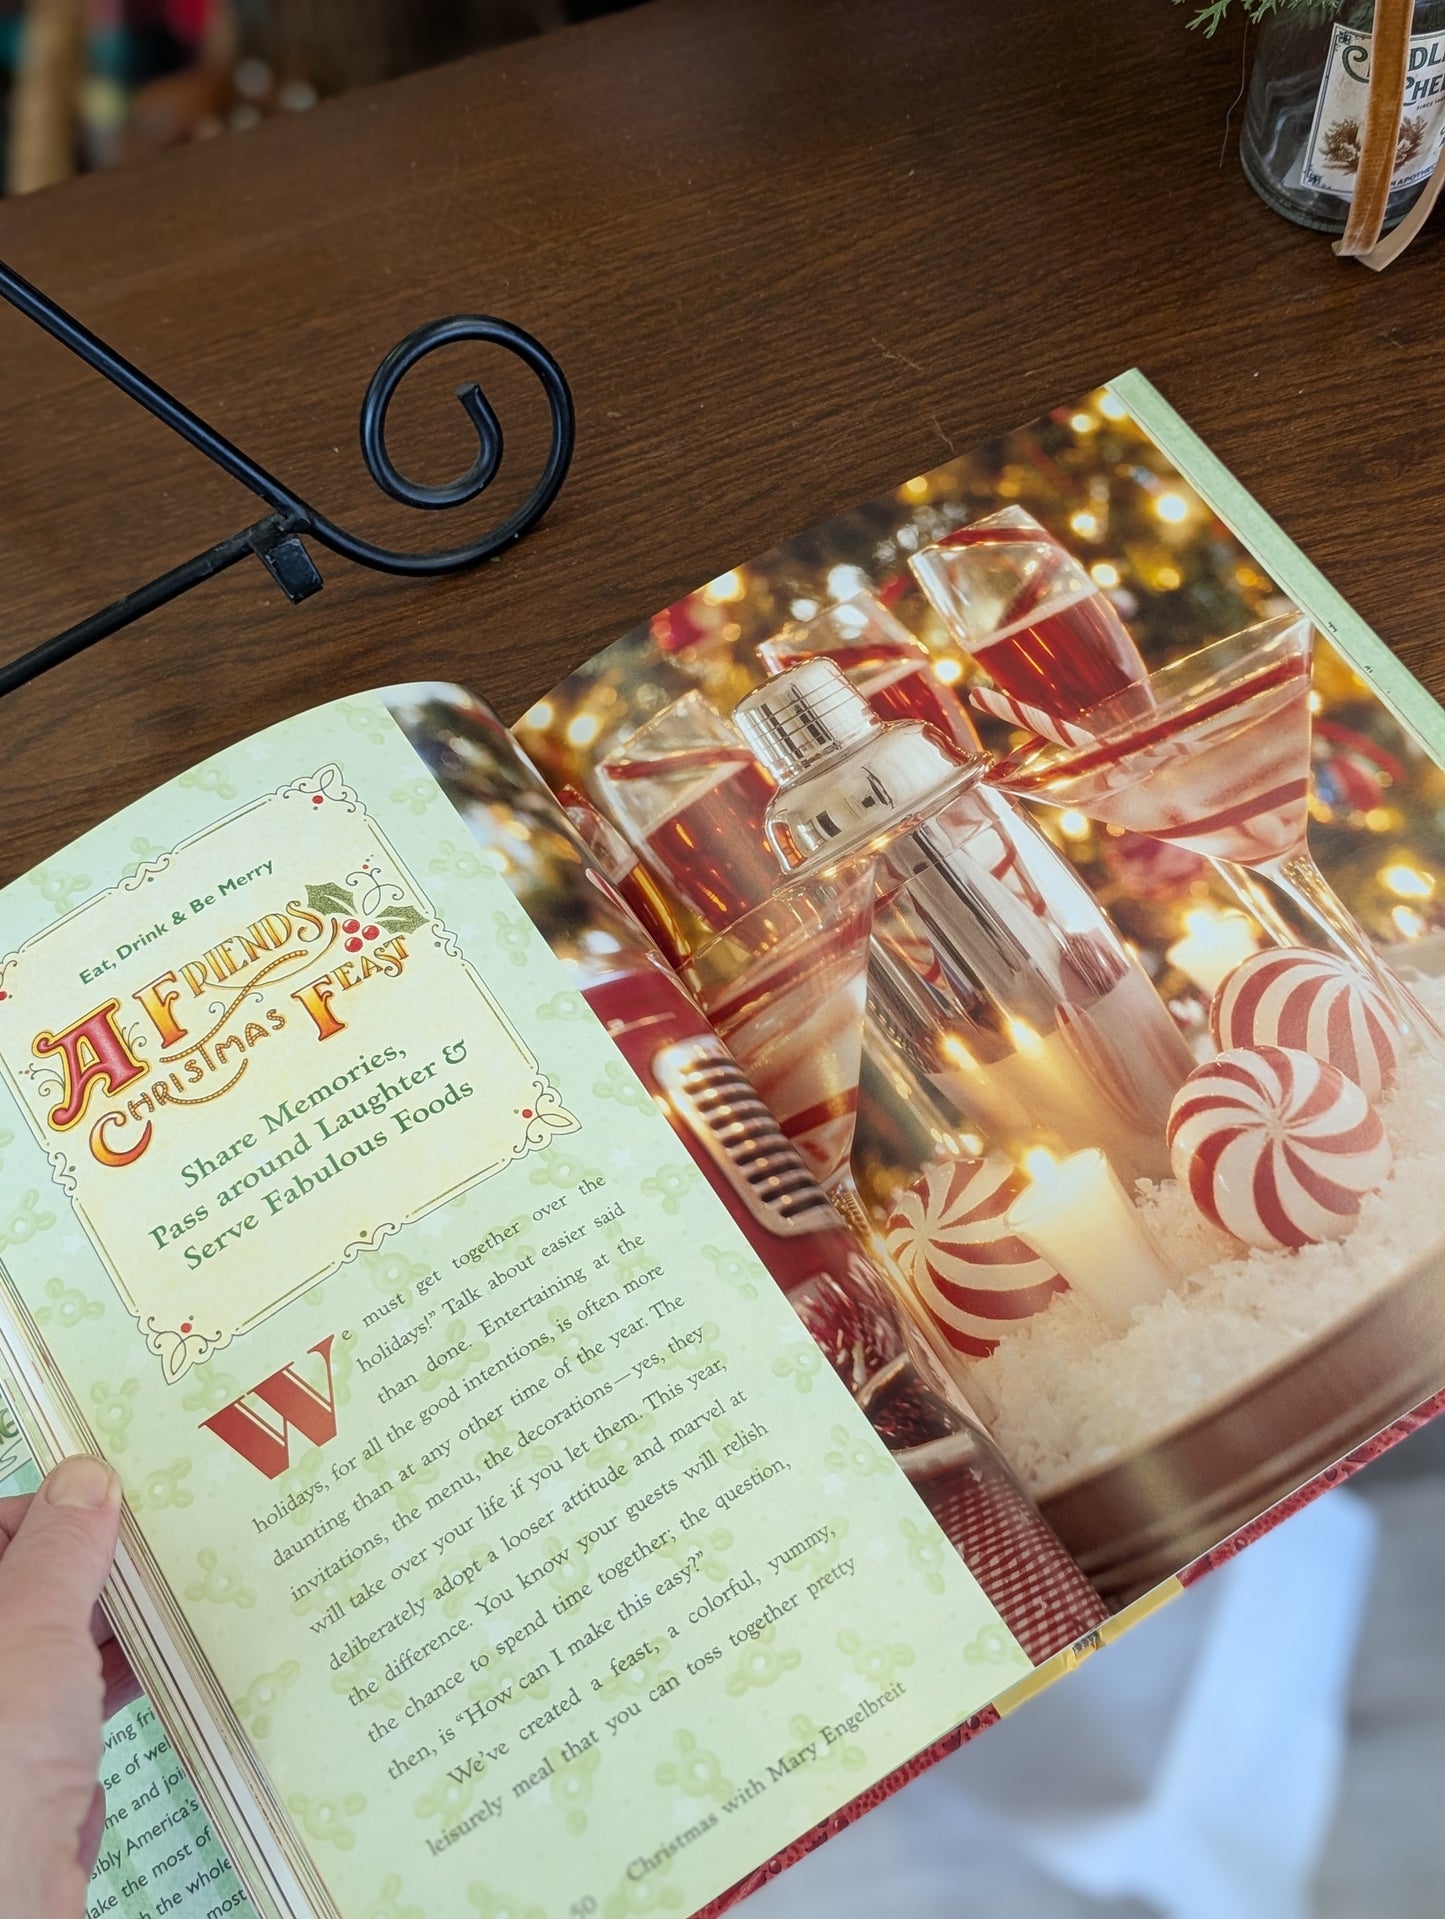 Eat, Drink & Be Merry
A FRIENDS
CHRISTMAS FEAST
Share Memories,
Pass around Laughter &
Serve Fabulous Foods
We must get together over the
holidays!” Talk about easier said
than done. Entertaining at the
holidays, for all the good intentions, is often more
daunting than at any other time of the year. The
invitations, the menu, the decorations—yes, they
will take over your life if you let them. This year,
deliberately adopt a looser attitude and marvel at
the difference. You know your guests will relish
the chance to spend time together; the question,
then, is “How can I make this easy?”
We’ve created a feast, a colorful, yummy,
leisurely meal that you can toss together pretty
50 Christmas with Mary Engelbreit
ving fri
se of wel
me and joi
ibly America's
ake the most of
h the whole
most